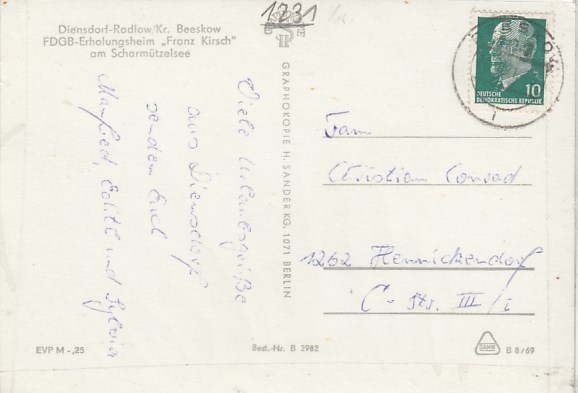 Diensdorf-Radlow/Kr. Beeskow
FDGB-Erholungsheim „Franz Kirsch"
am Scharmützelsee
1731
Viele Urlaubsgrüße
aus Diensdorf
senden Euch
Manfred, Edith und Sylvia
GRAPHOKOPIE H. SANDER KG, 1071 BERLIN
10
DEUTSCHE
DEMOKRATISCHE REPUBLIK
Fam
Christian Conrad
1262 Hennickendorf
C-Str. III/i
EVP M -,25
Best.-Nr. B 2982
B 8/69